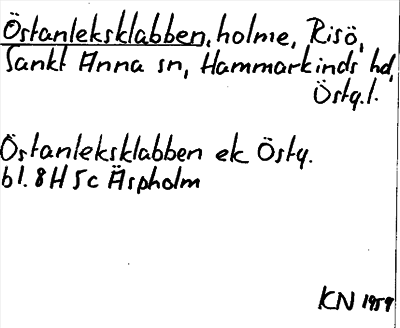 Östanleksklabben, holme, Risö,
Sankt Anna sn, Hammarkinds hd,
Östg.l.
Östanleksklabben ek Östg.
bl. 8H 5c Äspholm
KN 1959